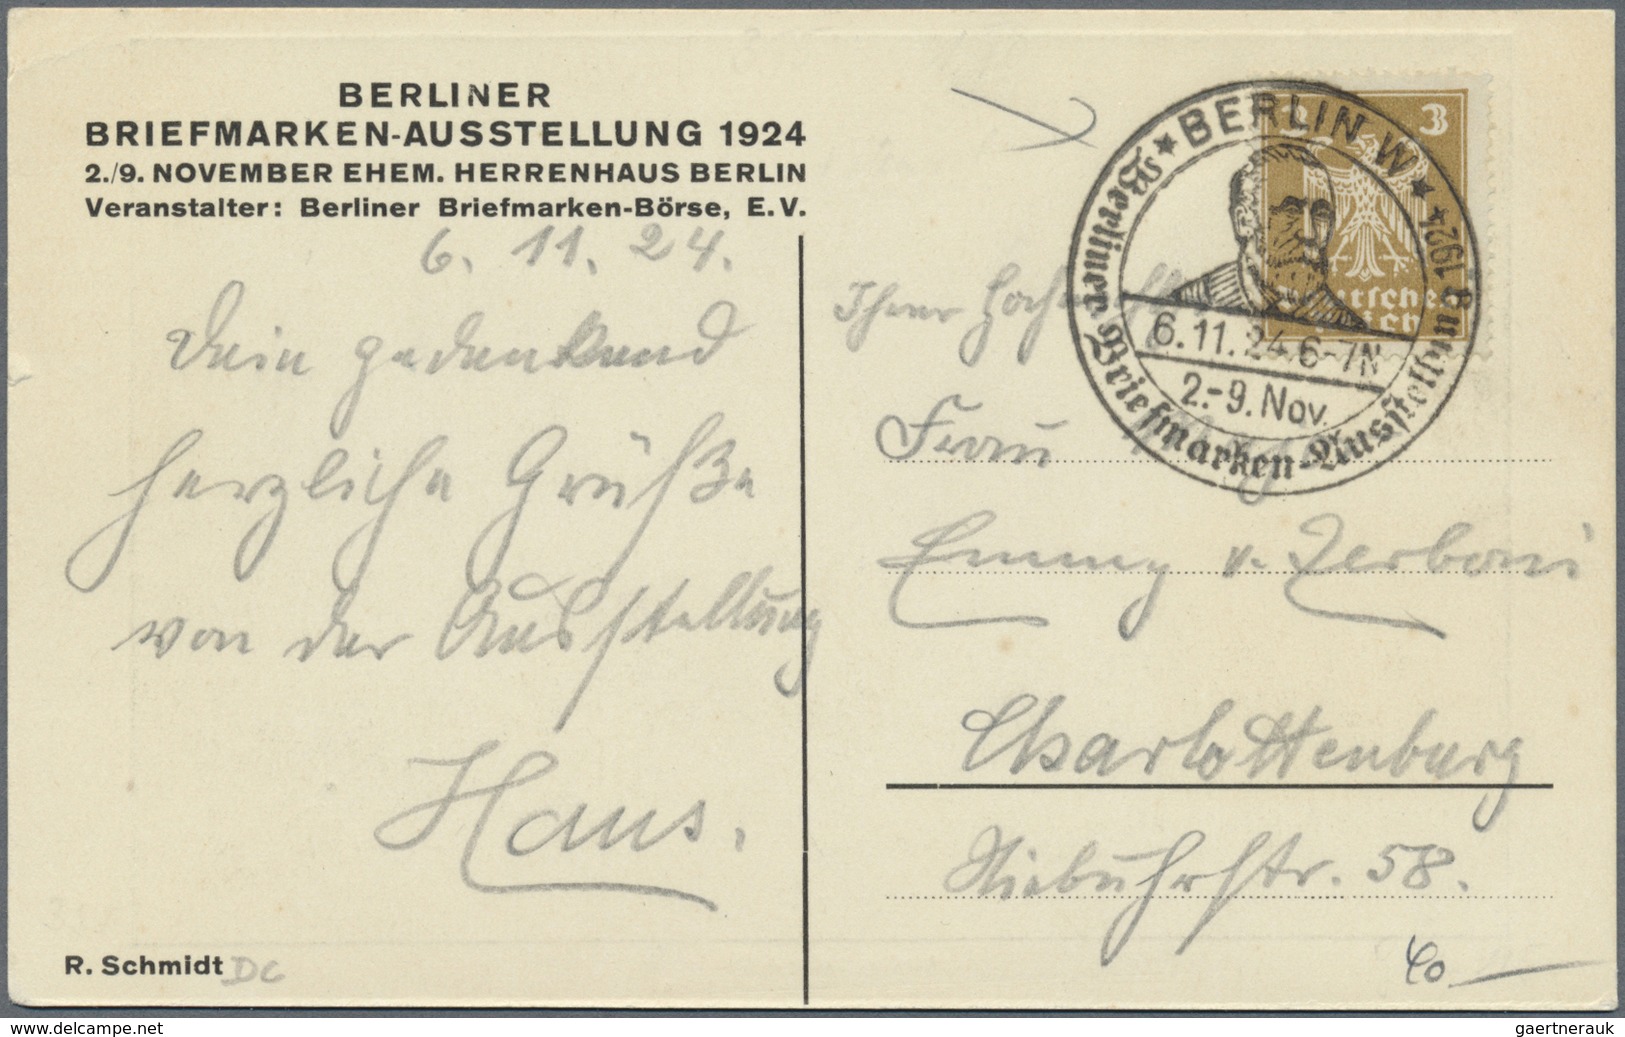 BERLINER
BRIEFMARKEN-AUSSTELLUNG 1924
2./9. NOVEMBER EHEM. HERRENHAUS BERLIN
Veranstalter: Berliner Briefmarken-Börse, E.V.
6. 11. 24.
Dein gedenkend
herzliche Grüße
von der Ausstellung
Hans.
R. Schmidt
DC
3 3
Deutsches
Reich
★ BERLIN W ★
Berliner Briefmarken-Ausstellung 1924
6.11.24.6-7N
2.-9. Nov.
8
Ihrer
Frau
Emmy v. Zerboni
Charlottenburg
Niebuhrstr. 58.
40
delcampe.net
gaertnerauk